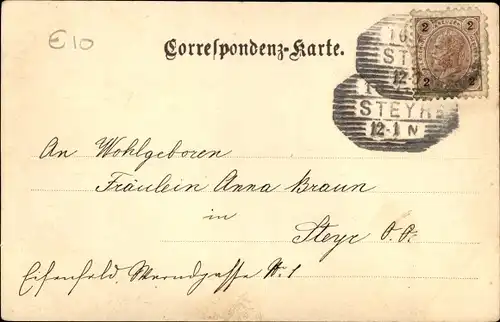 E10
Correspondenz-Karte.
2 2
2 2
STEYR
12-1 N
An Wohlgeboren
Fräulein Anna Braun
in
Steyr O. Ö.
Eisenfeld, Werndgasse Nr. 1